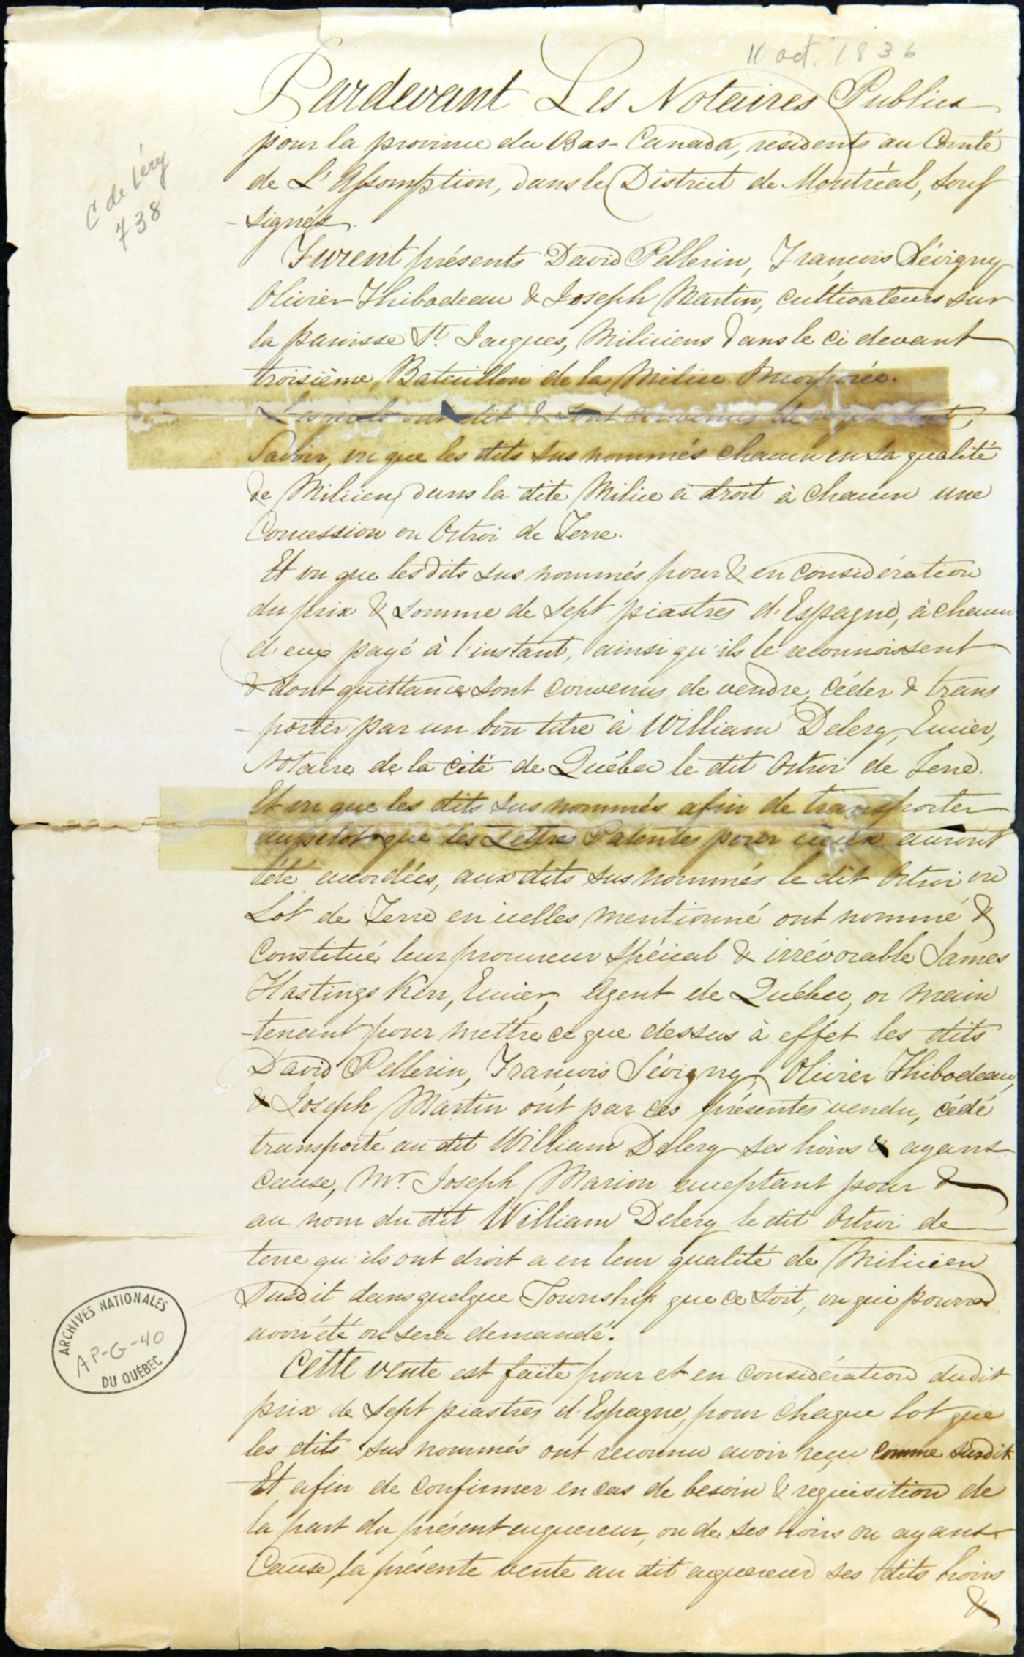 11 oct. 1836
C de Léry
738
Pardevant Les Notaires Publics
pour la province du Bas-Canada, résidents au Comté
de L'Assomption, dans le District de Montréal, Souf
-signés.
Furent présents David Pellerin, François Lévigny
Olivier Thibodeau & Joseph Martin, cultivateurs sur
la paroisse St. Jacques, Miliciens dans le ci devant
troisième Bataillon de la Milice Incorporée.
Lesquels ont dit & sont convenus de
Savoir, vu que les dits sus nommés chacun en sa qualité
de Milicien, dans la dite Milice a droit à chacun une
Concession ou Octroi de Terre.
Et vu que les dits sus nommés pour & en considération
du prix & somme de sept piastres d'Espagne, à chacun
d'eux payé à l'instant, ainsi qu'ils le reconnoissent
& dont quittance sont convenus de vendre, céder & trans
-porter par un bon titre à William Delery, Ecuier,
Notaire de la Cité de Québec le dit Octroi de Terre.
Et vu que les dits sus nommés afin de transporter
aussitot que les Lettres Patentes pour iceux auront
été accordées, aux dits sus nommés le dit Octroi ou
Lot de Terre en icelles mentionné ont nommé &
constitué leur procureur spécial & irrévocable James
Hastings Kerr, Ecuier, Agent de Québec, or main
-tenant pour mettre ce que dessus à effet les dits
David Pellerin, François Lévigny, Olivier Thibodeau,
& Joseph Martin ont par ces présentes vendu, cédé
transporté au dit William Delery ses hoirs & ayans
cause, Mr. Joseph Marion acceptant pour &
au nom du dit William Delery le dit Octroi de
terre qu'ils ont droit a en leur qualité de Milicien
Susdit dans quelque Township que ce soit, ou qui pourra
avoir été ou sera demandé.
Cette vente est faite pour et en considération du dit
prix de sept piastres d'Espagne, pour chaque lot que
les dits sus nommés ont reconnu avoir reçu comme susdit
Et afin de confirmer en cas de besoin & requisition de
la part du présent acquereur, ou de ses hoirs ou ayant
Cause, la présente vente au dit acquereur ses dits hoirs
&
ARCHIVES NATIONALES
AP-G-40
DU QUÉBEC